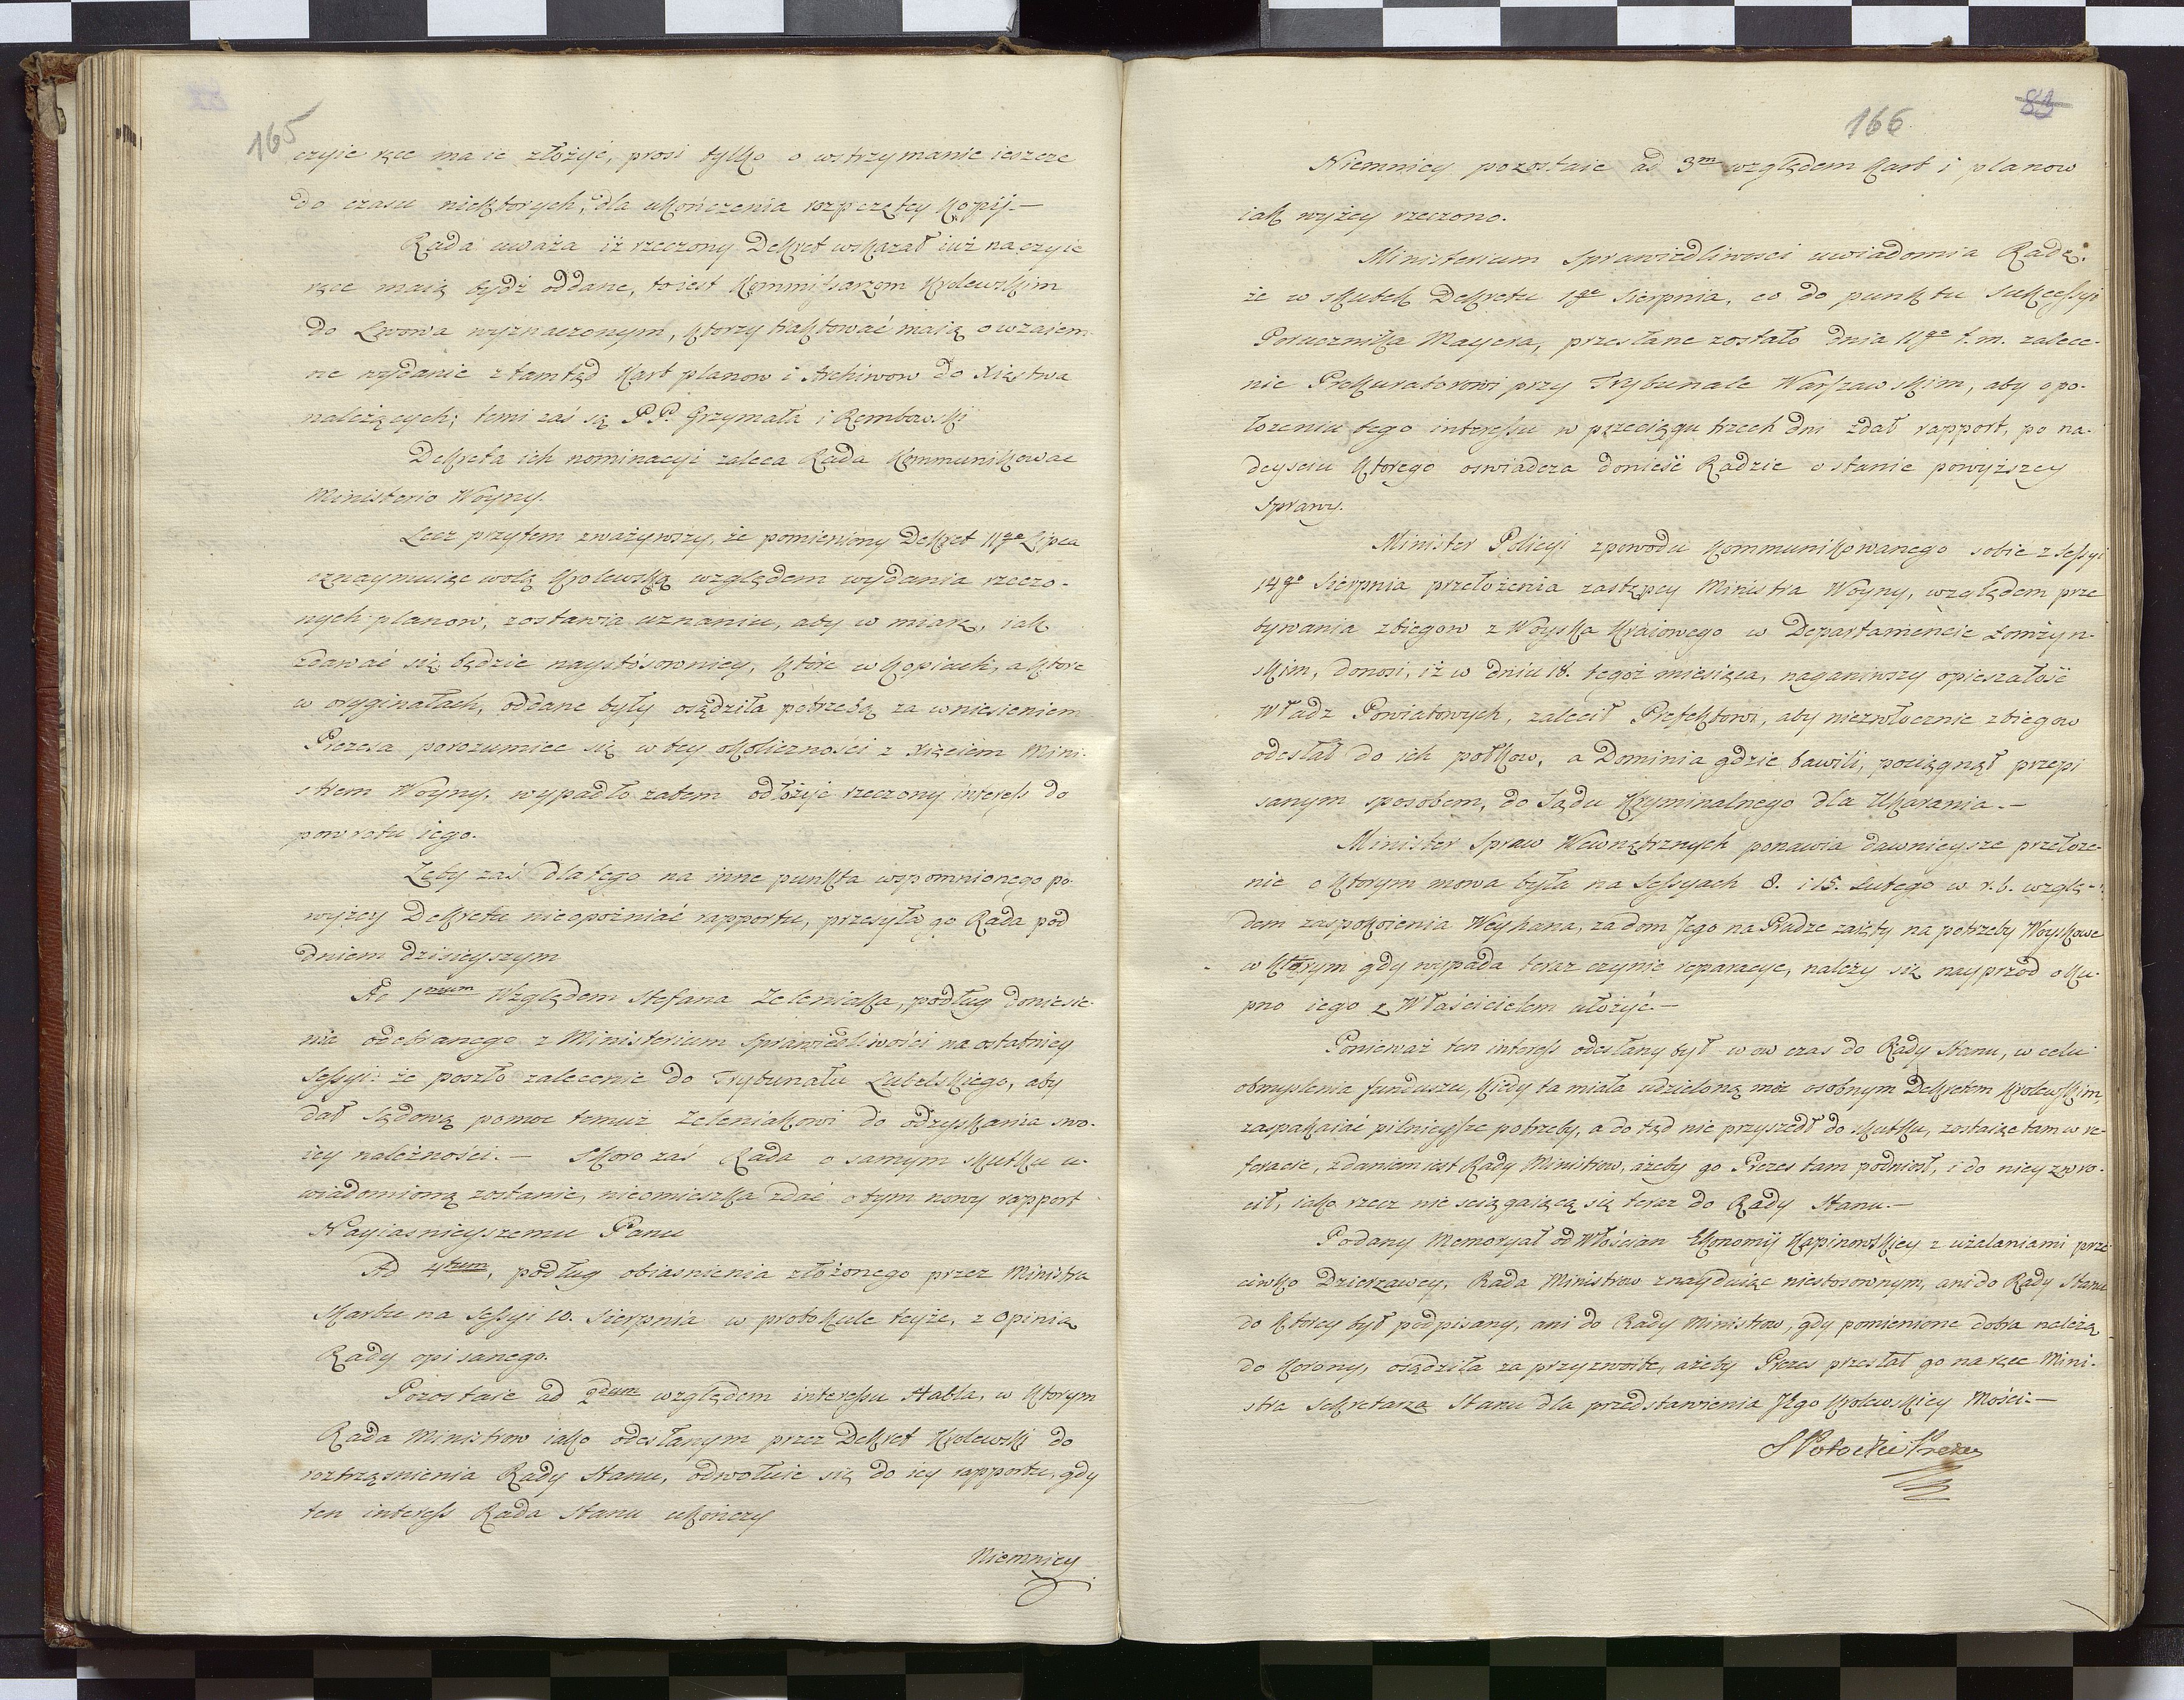 165
czyie ręce ma ie złożyć, prosi tylko o wstrzymanie ieszcze
do czasu niektorych, dla ukończenia rozpczętey kopij.—
Rada uważa iż rzeczony Dekret wskazał iuż na czyie
ręce maią bydź oddane, to iest Kommissarzom Krolewskim
do Lwowa wyznaczonym, ktorzy traktować maią o wzaiem-
ne wydanie ztamtąd kart planow i Archiwow do Xięstwa
należących; temi zaś są P.P. Grzymała i Rembowski
Dekreta ich nominacyi zaleca Rada kommunikowac
Ministerio Woyny.
Lecz przytem zważywszy, że pomieniony Dekret 11go Lipca
oznaymuiąc wolą Krolewską względem wydania rzeczo-
nych planow, zostawia uznaniu, aby w miarę, iak
zdawać się będzie naystósowniey, które w kopiach, a ktore
w oryginałach, oddane były osądziła potrzebą za wniesieniem
Prezesa porozumiec się w tey okoliczności z Xięciem Mini-
strem Woyny, wypadło zatem odłożyć rzeczony interess do
powrotu iego.
Żeby zaś dla tego na inne punkta wspomnionego po-
wyżey Dekretu nieopoźniać rapportu, przesyła go Rada pod
dniem dzisieyszym
Ad 1mum Względem Stefana Zeleniaka, podług doniesie-
nia odebranego z Ministerium Sprawiedliwości na ostatniey
Sessyi: że poszło zalecenie do Trybunału Lubelskiego, aby
dał sądową pomoc temuż Zeleniakowi do odzyskania swo-
iey należności.— Skoro zaś Rada o samym skutku u-
wiadomioną zostanie, nieomieszka zdać o tym nowy rapport
Nayiasnieyszemu Panu
Ad 4tum, podług obiasnienia złożonego przez Ministra
Skarbu na Sessyi 10. Sierpnia w protokule teyże, z Opinią
Rady opisanego.
Pozostaie ad 2dum względem interessu Stabla, w ktorym
Rada Ministrow iako odesłanym przez Dekret Krolewski do
roztrząsnienia Rady Stanu, odwołuie się do iey rapportu, gdy
ten interess Rada Stanu ukończy
Niemniey
166
83
Niemniey pozostaie ad 3m względem kart i planow
iak wyżey rzeczono.
Ministerium Sprawiedliwosci uwiadomia Radę:
że w skutek Dekretu 1go Sierpnia, co do punktu sukcessyi
Porucznika Mayera, przesłane zostało dnia 11go t. m. zalece-
nie Prokuratorowi przy Trybunale Warszawskim, aby o po-
łożeniu tego interessu w przeciągu trzech dni zdał rapport, po na-
deysciu ktorego oswiadcza donieść Radzie o stanie powyższey
sprawy.
Minister Policyi zpowodu kommunikowanego sobie z Sessyi
14go Sierpnia przełożenia zastępcy Ministra Woyny, względem prze
bywania zbiegow z Woyska kraiowego w Departamencie Łomżyn-
skim, donosi, iż w dniu 18. tegoż miesiąca, naganiwszy opieszałość
Władz Powiatowych, zalecił Prefektowi, aby niezwłocznie zbiegow
odesłał do ich połkow, a Dominia gdzie bawili, pociągnął przepi
sanym sposobem, do Sądu Kryminalnego dla Ukarania.—
Minister Spraw Wewnętrznych ponawia dawnieysze przełoże-
nie o ktorym mowa była na Sessyach 8. i 15. Lutego w r. b. wzglę-
dem zaspokoienia Weyhana, za dom Jego na Pradze zaięty na potrzeby Woyskowe
w ktorym gdy wypada teraz czynic reparacye, należy się nayprzod o ku-
pno iego z Właścicielem ułożyć.—
Ponieważ ten interess odesłany był w ow czas do Rady Stanu, w celu
obmyslenia funduszu, kiedy ta miała udzieloną moc osobnym Dekretem Krolewskim,
zaspakaiać pilnieysze potrzeby, a do tąd nie przyszedł do skutku, zostaiąc tam w re-
feracie, zdaniem iest Rady Ministrow, ażeby go Prezes tam podniosł, i do niey zwro-
cił, iako rzecz nie sciągaiącą się teraz do Rady Stanu.—
Podany Memoryał od Włościan Ekonomij Kapinowskiey z użalaniami prze
ciwko Dzierzawcy, Rada Ministrow znayduiąc niestosownym, ani do Rady Stanu
do ktorey był podpisany, ani do Rady Ministrow, gdy pomienione dobra należą
do Korony, osądziła za przyzwoite, ażeby Prezes przesłał go na ręce Mini-
stra Sekretarza Stanu dla przedstawienia Jego Krolewskiey Mości.—
S Potocki Prezes